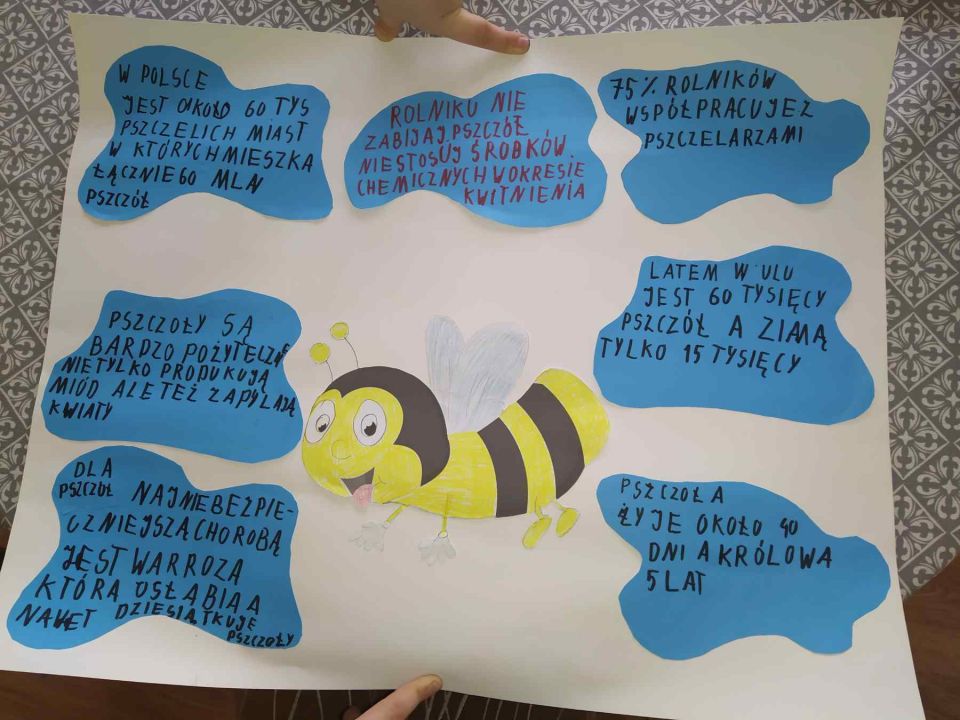 W POLSCE
JEST OKOŁO 60 TYS
PSZCZELICH MIAST
W KTÓRYCH MIESZKA
ŁĄCZNIE 60 MLN
PSZCZÓŁ
ROLNIKU NIE
ZABIJAJ PSZCZÓŁ
NIE STOSUJ ŚRODKÓW
CHEMICZNYCH W OKRESIE
KWITNIENIA
75% ROLNIKÓW
WSPÓŁPRACUJE Z
PSZCZELARZAMI
PSZCZOŁY SĄ
BARDZO POŻYTECZNE
NIETYLKO PRODUKUJĄ
MIÓD ALE TEŻ ZAPYLAJĄ
KWIATY
LATEM W ULU
JEST 60 TYSIĘCY
PSZCZÓŁ A ZIMĄ
TYLKO 15 TYSIĘCY
DLA
PSZCZÓŁ NAJNIEBEZPIE-
CZNIEJSZĄ CHOROBĄ
JEST WARROZA
KTÓRA OSŁABIA A
NAWET DZIESIĄTKUJE
PSZCZOŁY
PSZCZOŁA
ŻYJE OKOŁO 40
DNI A KRÓLOWA
5 LAT